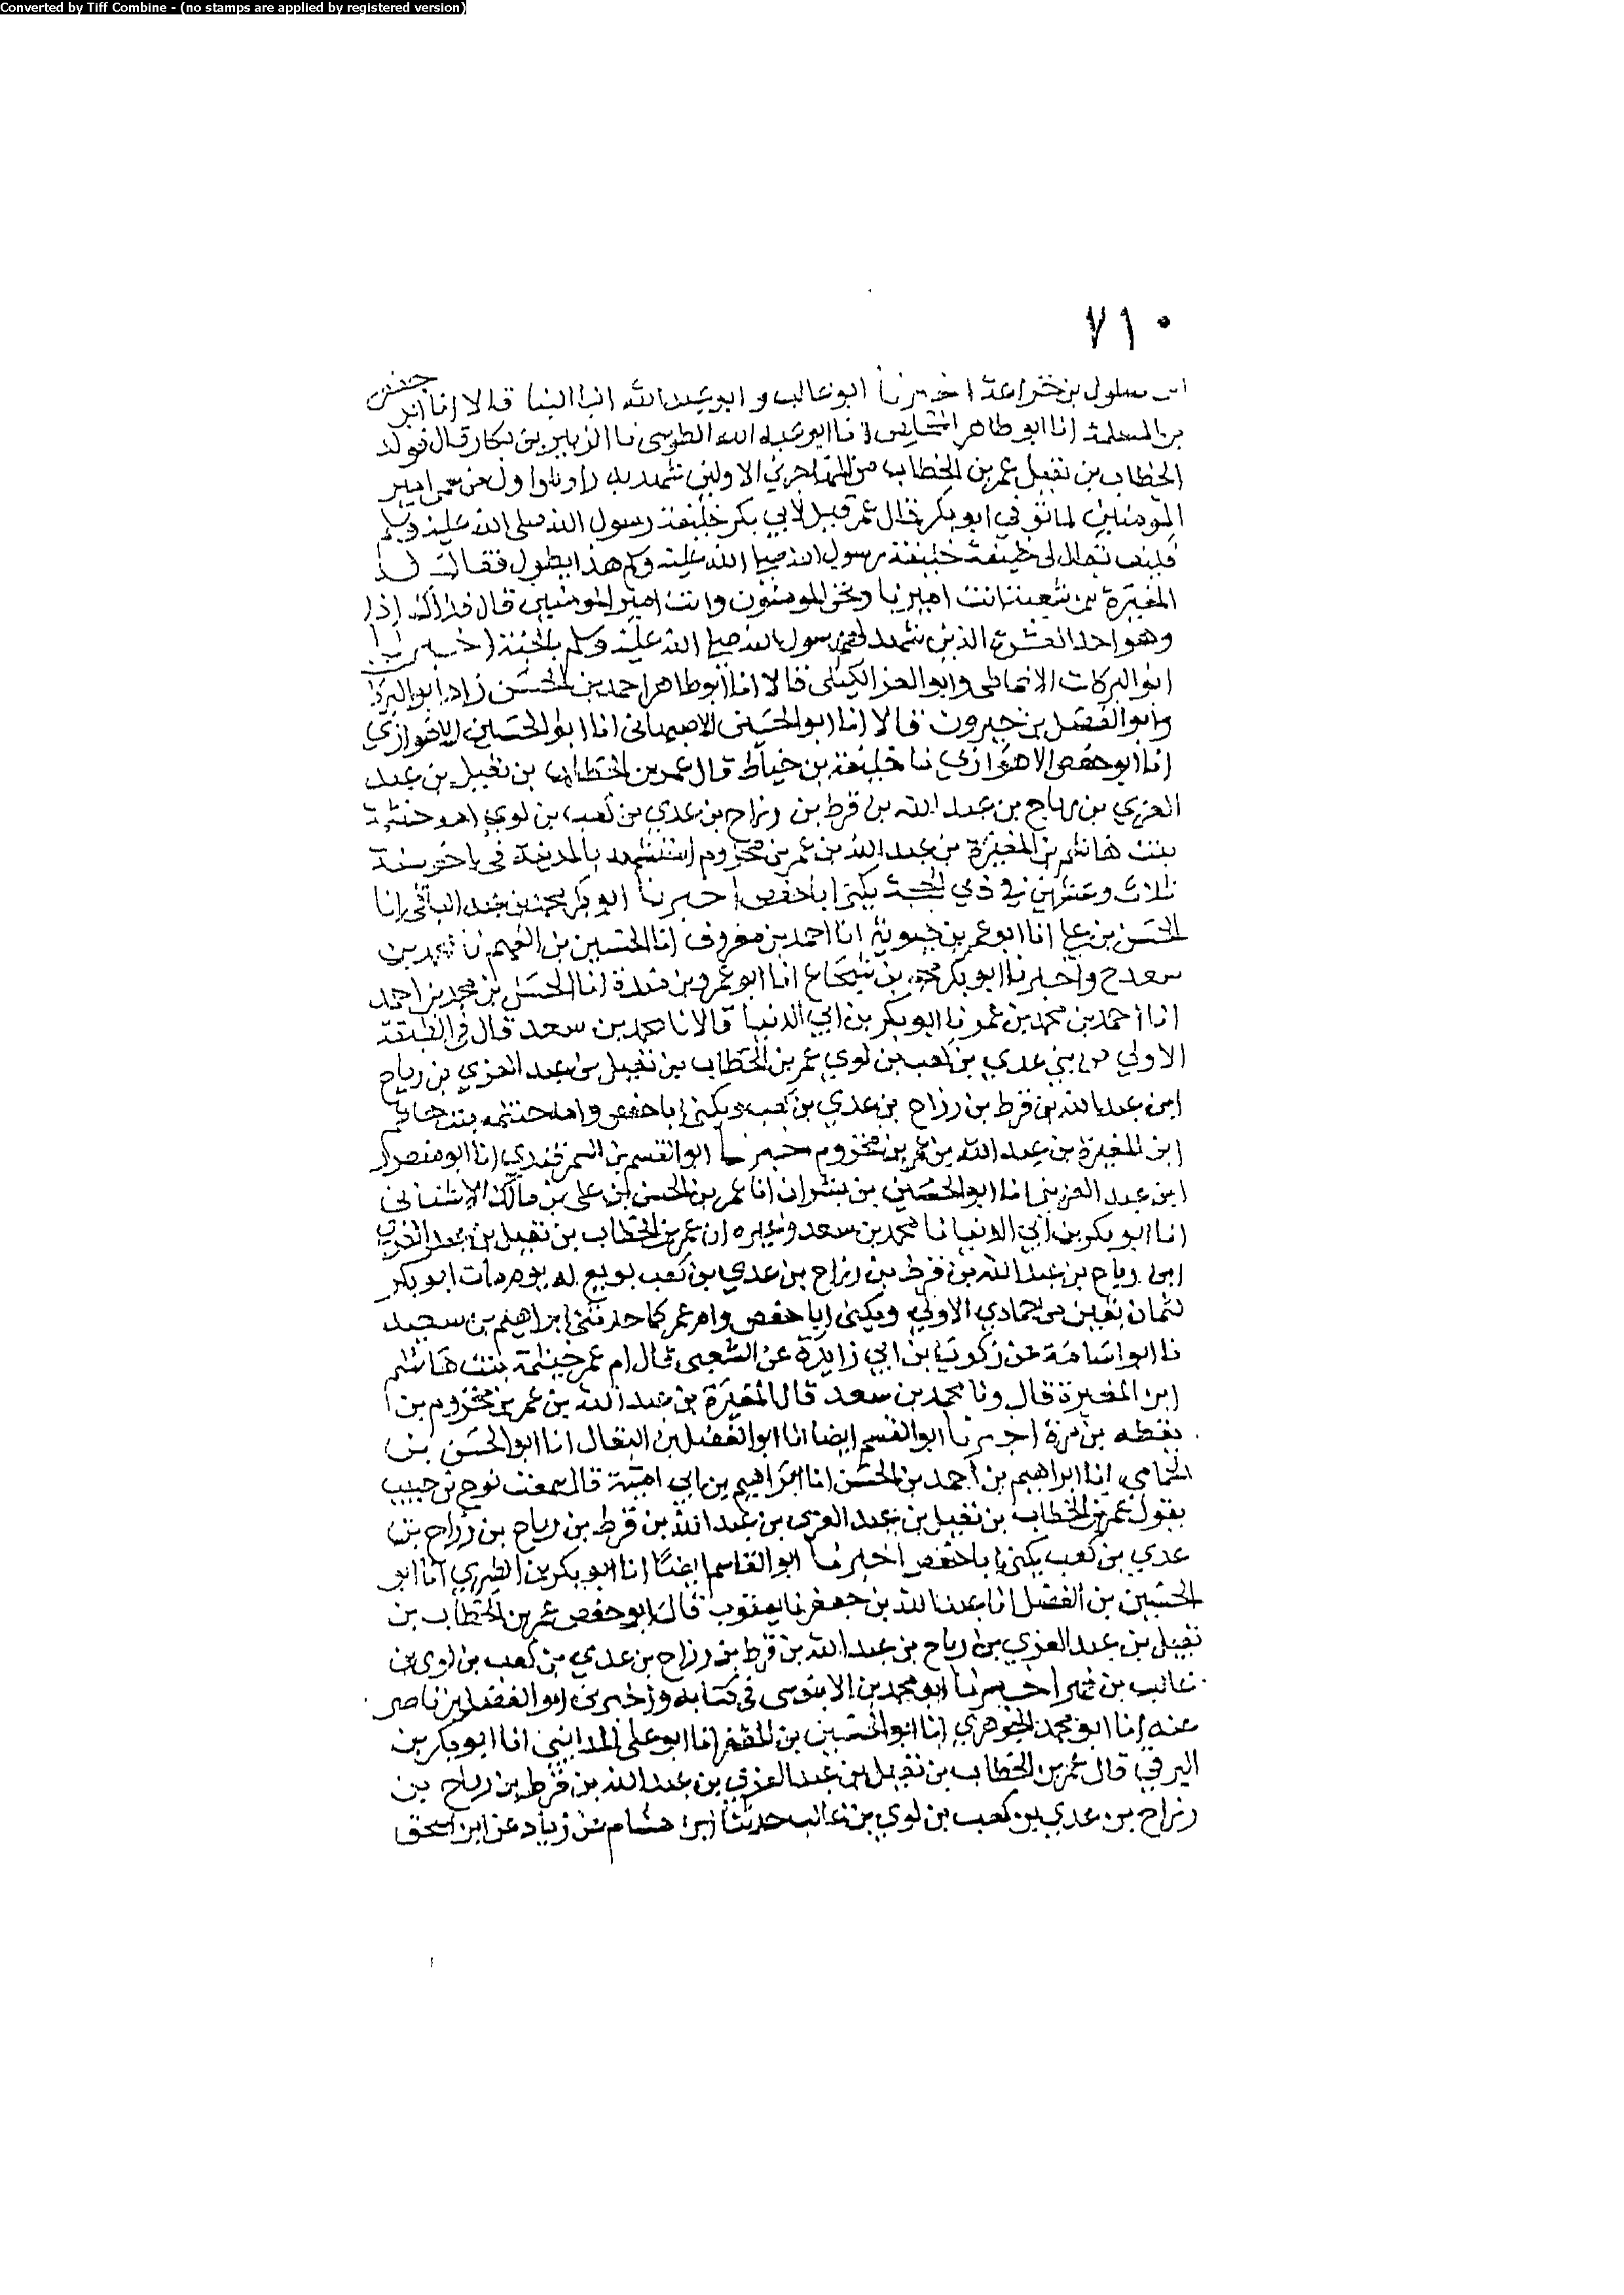 Converted by Tiff Combine - (no stamps are applied by registered version)
٧١٠
بن سلول بن خزاعة اخبرنا ابو غالب وابو عبد الله ابنا البنا قالا انا ابو جعفر
بن المسلمة انا ابو طاهر المخلص انا ابو عبد الله الطوسي نا الزبير بن بكار قال فولد
الخطاب بن نفيل عمر بن الخطاب من المهاجرين الاولين شهد بدرا واول من سمي امير
المومنين لما توفي ابو بكر قال عمر قيل لابي بكر خليفة رسول الله صلى الله عليه وسلم
فكيف يقال لي خليفة خليفة رسول الله صلى الله عليه وسلم هذا يطول فقال له
المغيرة بن شعبة انت اميرنا ونحن المومنون وانت امير المومنين قال فذاك اذا
وهو احد العشرة الذين شهد لهم رسول الله صلى الله عليه وسلم بالجنة اخبرنا
ابو البركات الانماطي وابو العز الكيلي قالا انا ابو طاهر احمد بن الحسن زاد ابو البركات
وابو الفضل بن خيرون قالا انا ابو الحسين الاصبهاني انا ابو الحسين الاهوازي
انا ابو حفص الاهوازي نا خليفة بن خياط قال عمر بن الخطاب بن نفيل بن عبد
العزي بن رياح بن عبد الله بن قرط بن رزاح بن عدي بن كعب بن لوي امه حنتمة
بنت هاشم بن المغيرة بن عبد الله بن عمر بن مخزوم استشهد بالمدينة في اخر سنة
ثلاث وعشرين في ذي الحجة يكنى ابا حفص اخبرنا ابو بكر محمد بن عبد الباقي انا
الحسن بن علي انا ابو عمر بن حيوية انا احمد بن معروف انا الحسين بن الفهم نا محمد بن
سعد ح واخبرنا ابو بكر محمد بن شجاع انا ابو عمرو بن مندة انا الحسن بن محمد بن احمد
انا احمد بن محمد بن عمر نا ابو بكر بن ابي الدنيا قالا نا محمد بن سعد قال في الطبقة
الاولي من بني عدي بن كعب بن لوي عمر بن الخطاب بن نفيل بن عبد العزي بن رياح
ابن عبد الله بن قرط بن رزاح بن عدي بن كعب ويكنى ابا حفص وامه حنتمة بنت هاشم
ابن المغيرة بن عبد الله بن عمر بن مخزوم اخبرنا ابو القسم بن السمرقندي انا ابو منصور
ابن عبد العزيز انا ابو الحسين بن بشران انا عمر بن الحسن بن علي بن مالك الاشناني
انا ابو بكر بن ابي الدنيا نا محمد بن سعد وغيره ان عمر بن الخطاب بن نفيل بن عبد العزي
ابن رياح بن عبد الله بن قرط بن رزاح بن عدي بن كعب بويع له يوم مات ابو بكر
لثمان بقين من جمادي الاولي ويكنى ابا حفص وام عمر كما حدثني ابراهيم بن سعيد
نا ابو اسامة عن زكريا بن ابي زايدة عن الشعبي قال ام عمر حنتمة بنت هاشم
ابن المغيرة قال ونا محمد بن سعد قال المغيرة بن عبد الله بن عمر بن مخزوم بن
يقظه بن مرة اخبرنا ابو القسم ايضا انا ابو الفضل بن البقال انا ابو الحسن بن
الحمامي انا ابراهيم بن احمد بن الحسن انا ابراهيم بن ابي امية قال سمعت نوح بن حبيب
يقول عمر بن الخطاب بن نفيل بن عبد العزى بن عبد الله بن قرط بن رياح بن رزاح بن
عدي بن كعب يكنى ابا حفص اخبرنا ابو القاسم ايضا انا ابو بكر بن الطبري انا ابو
الحسين بن الفضل انا عبد الله بن جعفر نا يعقوب قال ابو حفص عمر بن الخطاب بن
نفيل بن عبد العزي بن رياح بن عبد الله بن قرط بن رزاح بن عدي بن كعب بن لوي بن
غالب بن فهر اخبرنا ابو محمد بن الابنوسي في كتابه واخبرني ابو الفضل بن ناصر
عنه انا ابو محمد الجوهري انا ابو الحسين بن المظفر انا ابو علي المدايني انا ابو بكر بن
البرقي قال عمر بن الخطاب بن نفيل بن عبد العزي بن عبد الله بن قرط بن رياح بن
رزاح بن عدي بن كعب بن لوي بن غالب حدثنا ابن هشام عن زياد عن ابن اسحق